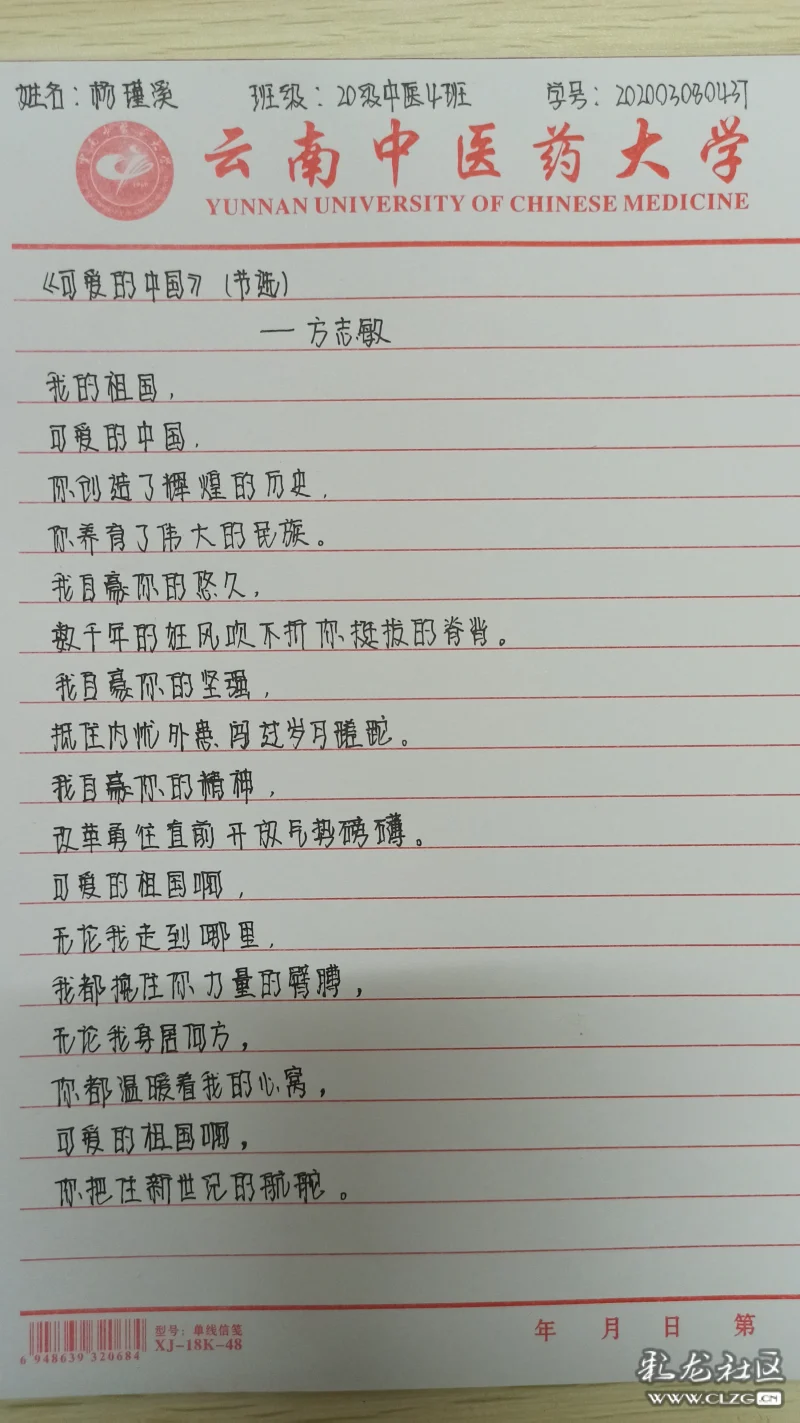 姓名：杨瑾溪 班级：20级中医4班 学号：202003080437
云南中医药大学
YUNNAN UNIVERSITY OF CHINESE MEDICINE
《可爱的中国》（节选）
— 方志敏
我的祖国，
可爱的中国，
你创造了辉煌的历史，
你养育了伟大的民族。
我自豪你的悠久，
数千年的狂风吹不折你挺拔的脊背。
我自豪你的坚强，
抵住内忧外患闯过岁月蹉跎。
我自豪你的精神，
改革勇往直前开放气势磅礴。
可爱的祖国啊，
无论我走到哪里，
我都挽住你力量的臂膊，
无论我身居何方，
你都温暖着我的心窝，
可爱的祖国啊，
你把住新世纪的航舵。
6 948639 320684
型号：单线信笺
XJ-18K-48
年 月 日 第
彩龙社区
WWW.CLZG.CN